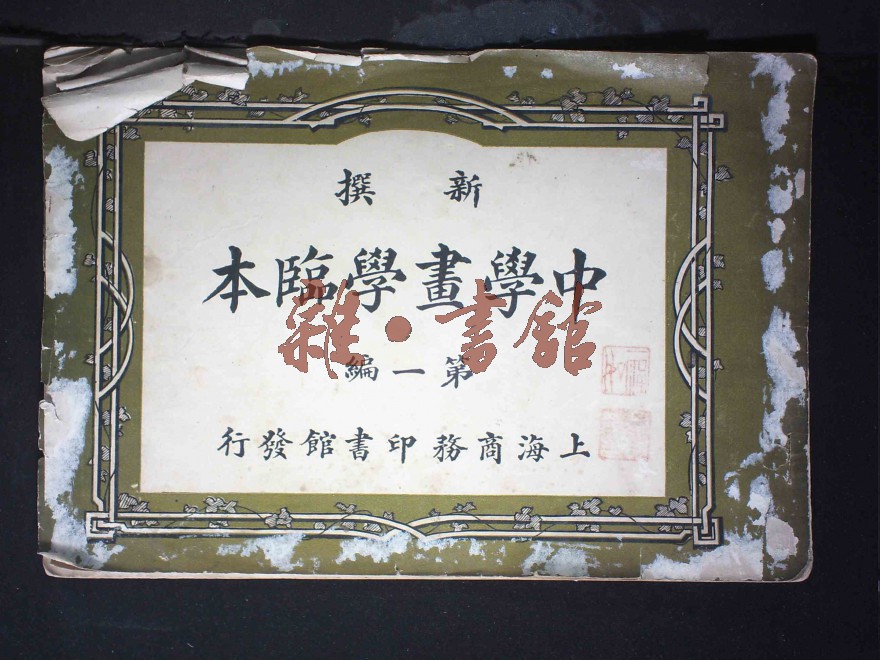 新撰
中學畫學臨本
雜·書館
第一編
上海商務印書館發行